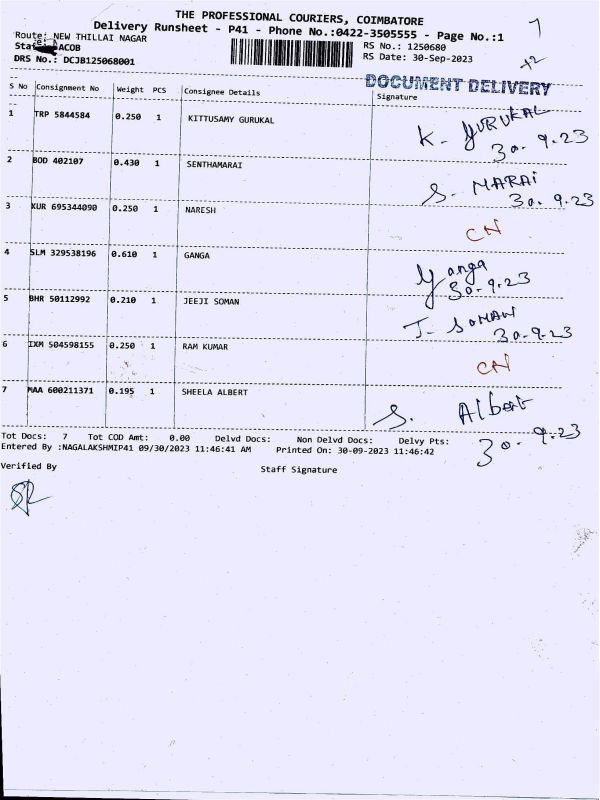 THE PROFESSIONAL COURIERS, COIMBATORE
Delivery Runsheet - P41 - Phone No.:0422-3505555 - Page No.:1
Route: NEW THILLAI NAGAR
RS No.: 1250680
ACOB
RS Date: 30-Sep-2023
+2
DRS No.: DCJB125068001
DOCUMENT DELIVERY
S No Consignment No Weight PCS Consignee Details Signature
1 TRP 5844584 0.250 1 KITTUSAMY GURUKAL K. GURUKAL
30.9.23
2 BOD 402107 0.430 1 SENTHAMARAI S. MARAI
30.9.23
3 KUR 695344090 0.250 1 NARESH CN
4 SLM 329538196 0.610 1 GANGA Ganga
30.9.23
5 BHR 50112992 0.210 1 JEEJI SOMAN J. SOMAN
30.9.23
6 IXM 504598155 0.250 1 RAM KUMAR CN
7 MAA 600211371 0.195 1 SHEELA ALBERT S. Albert
30.9.23
Tot Docs: 7 Tot COD Amt: 0.00 Delvd Docs: Non Delvd Docs: Delvy Pts:
Entered By :NAGALAKSHMIP41 09/30/2023 11:46:41 AM Printed On: 30-09-2023 11:46:42
Verified By Staff Signature